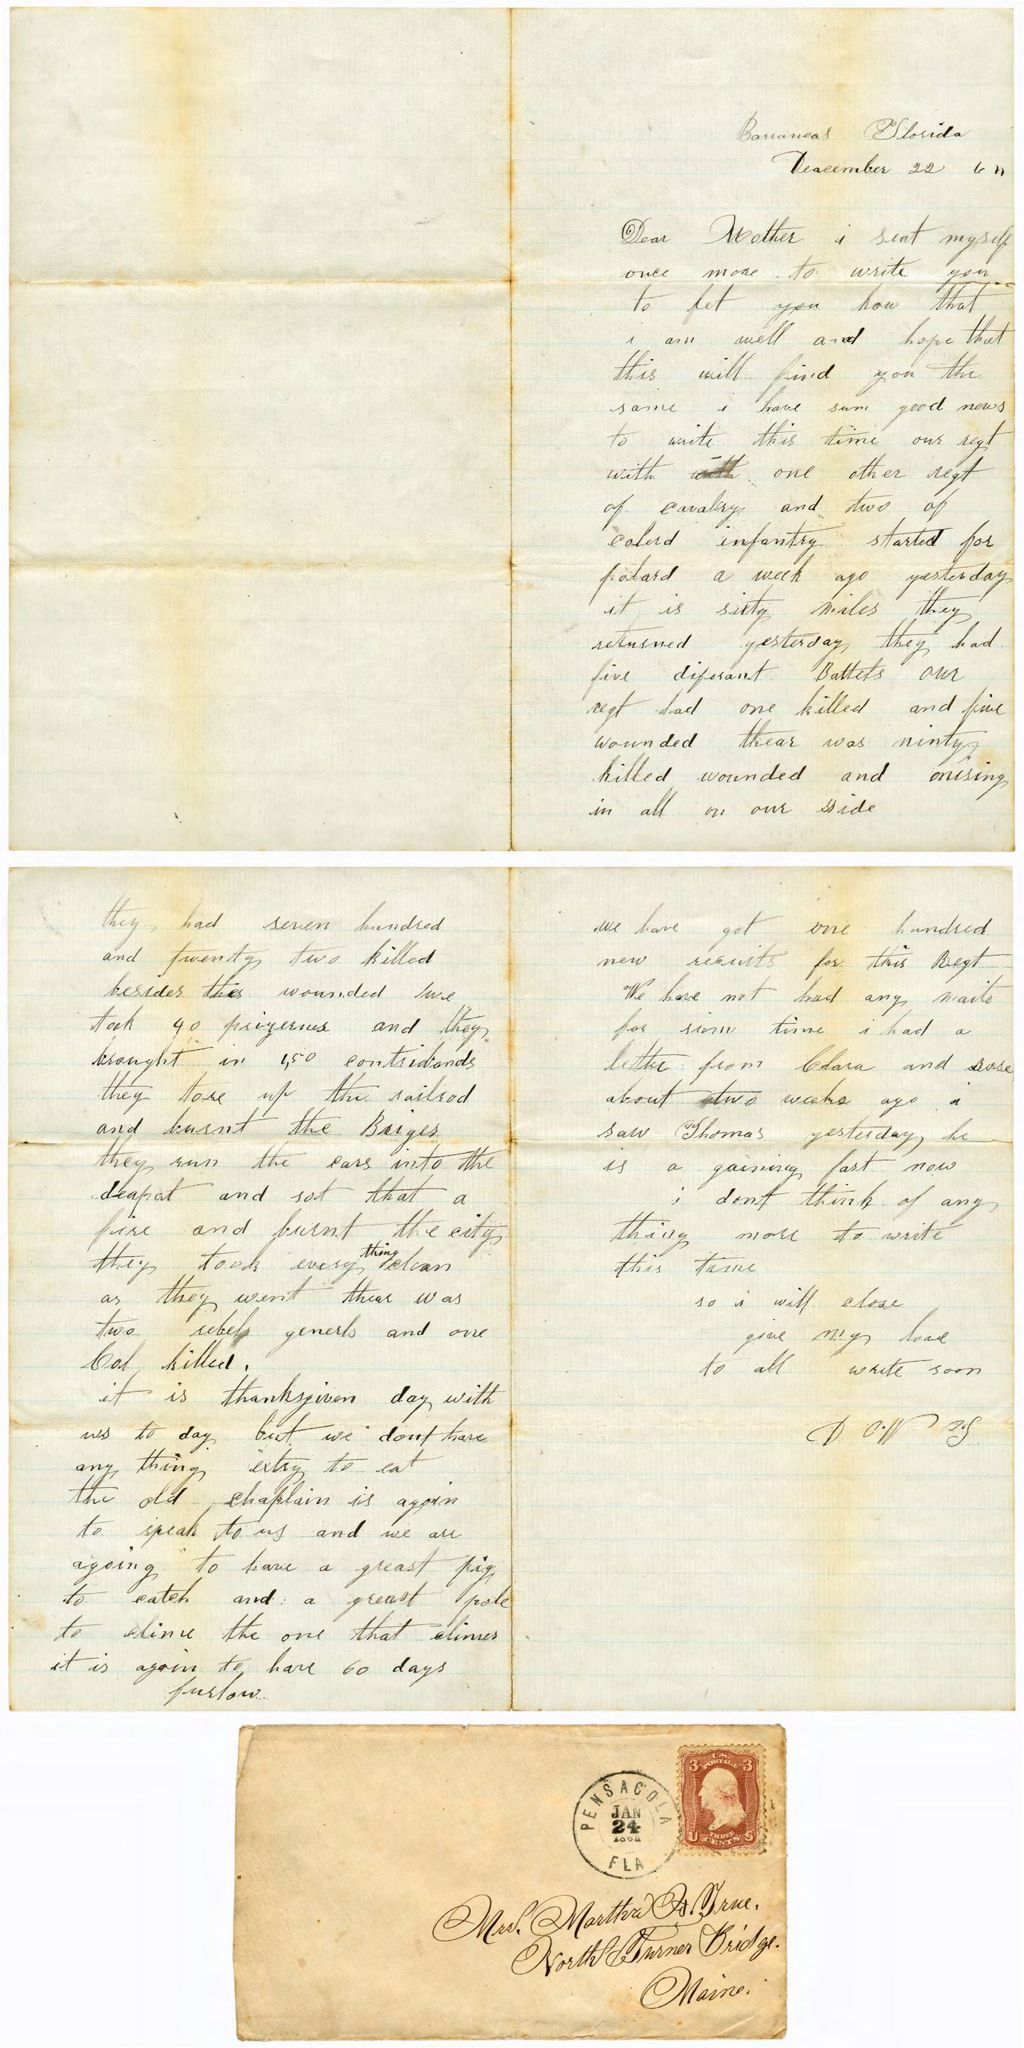 Barrancas Florida
Deacember 22 64
Dear Mother i seat myself
once more to write you
to let you know that
i am well and hope that
this will find you the
same i have sum good news
to write this time our regt
with with one other regt
of cavalry and two of
colerd infantry started for
polard a week ago yesterday
it is sixty miles they
returned yesterday they had
five diferant Battels our
regt had one killed and five
wounded thear was ninty
killed wounded and mising
in all on our side
they had seven hundred
and twenty two killed
besides the wounded we
took 40 and they
brought in 150
they tore up the railrod
and burnt the Briges
they run the cars into the
deapot and sot that a
fire and burnt the city
they took every thing clean
as they went thear was
two rebels generls and one
Col killed.
it is thanksgiven day with
us to day but we dont have
any thing extry to eat
the old chaplain is agoin
to speak to us and we are
agoing to have a greast pig
to catch and a greast pole
to clime the one that climes
it is agoin to have 60 days
furlow
we have got one hundred
new recruits for this Regt
We have not had any mails
for sum time i had a
letter from Clara and
about two weeks ago i
saw Thomas yesterday he
is a gaining fast now
i dont think of any
thing more to write
this time
so i will close
give my love
to all write soon
PENSACOLA
JAN
24
FLA
U.S.
POSTAGE
3 3
THREE
CENTS
U S
Mrs. Martha A. True.
North Turner Bridge.
Maine.